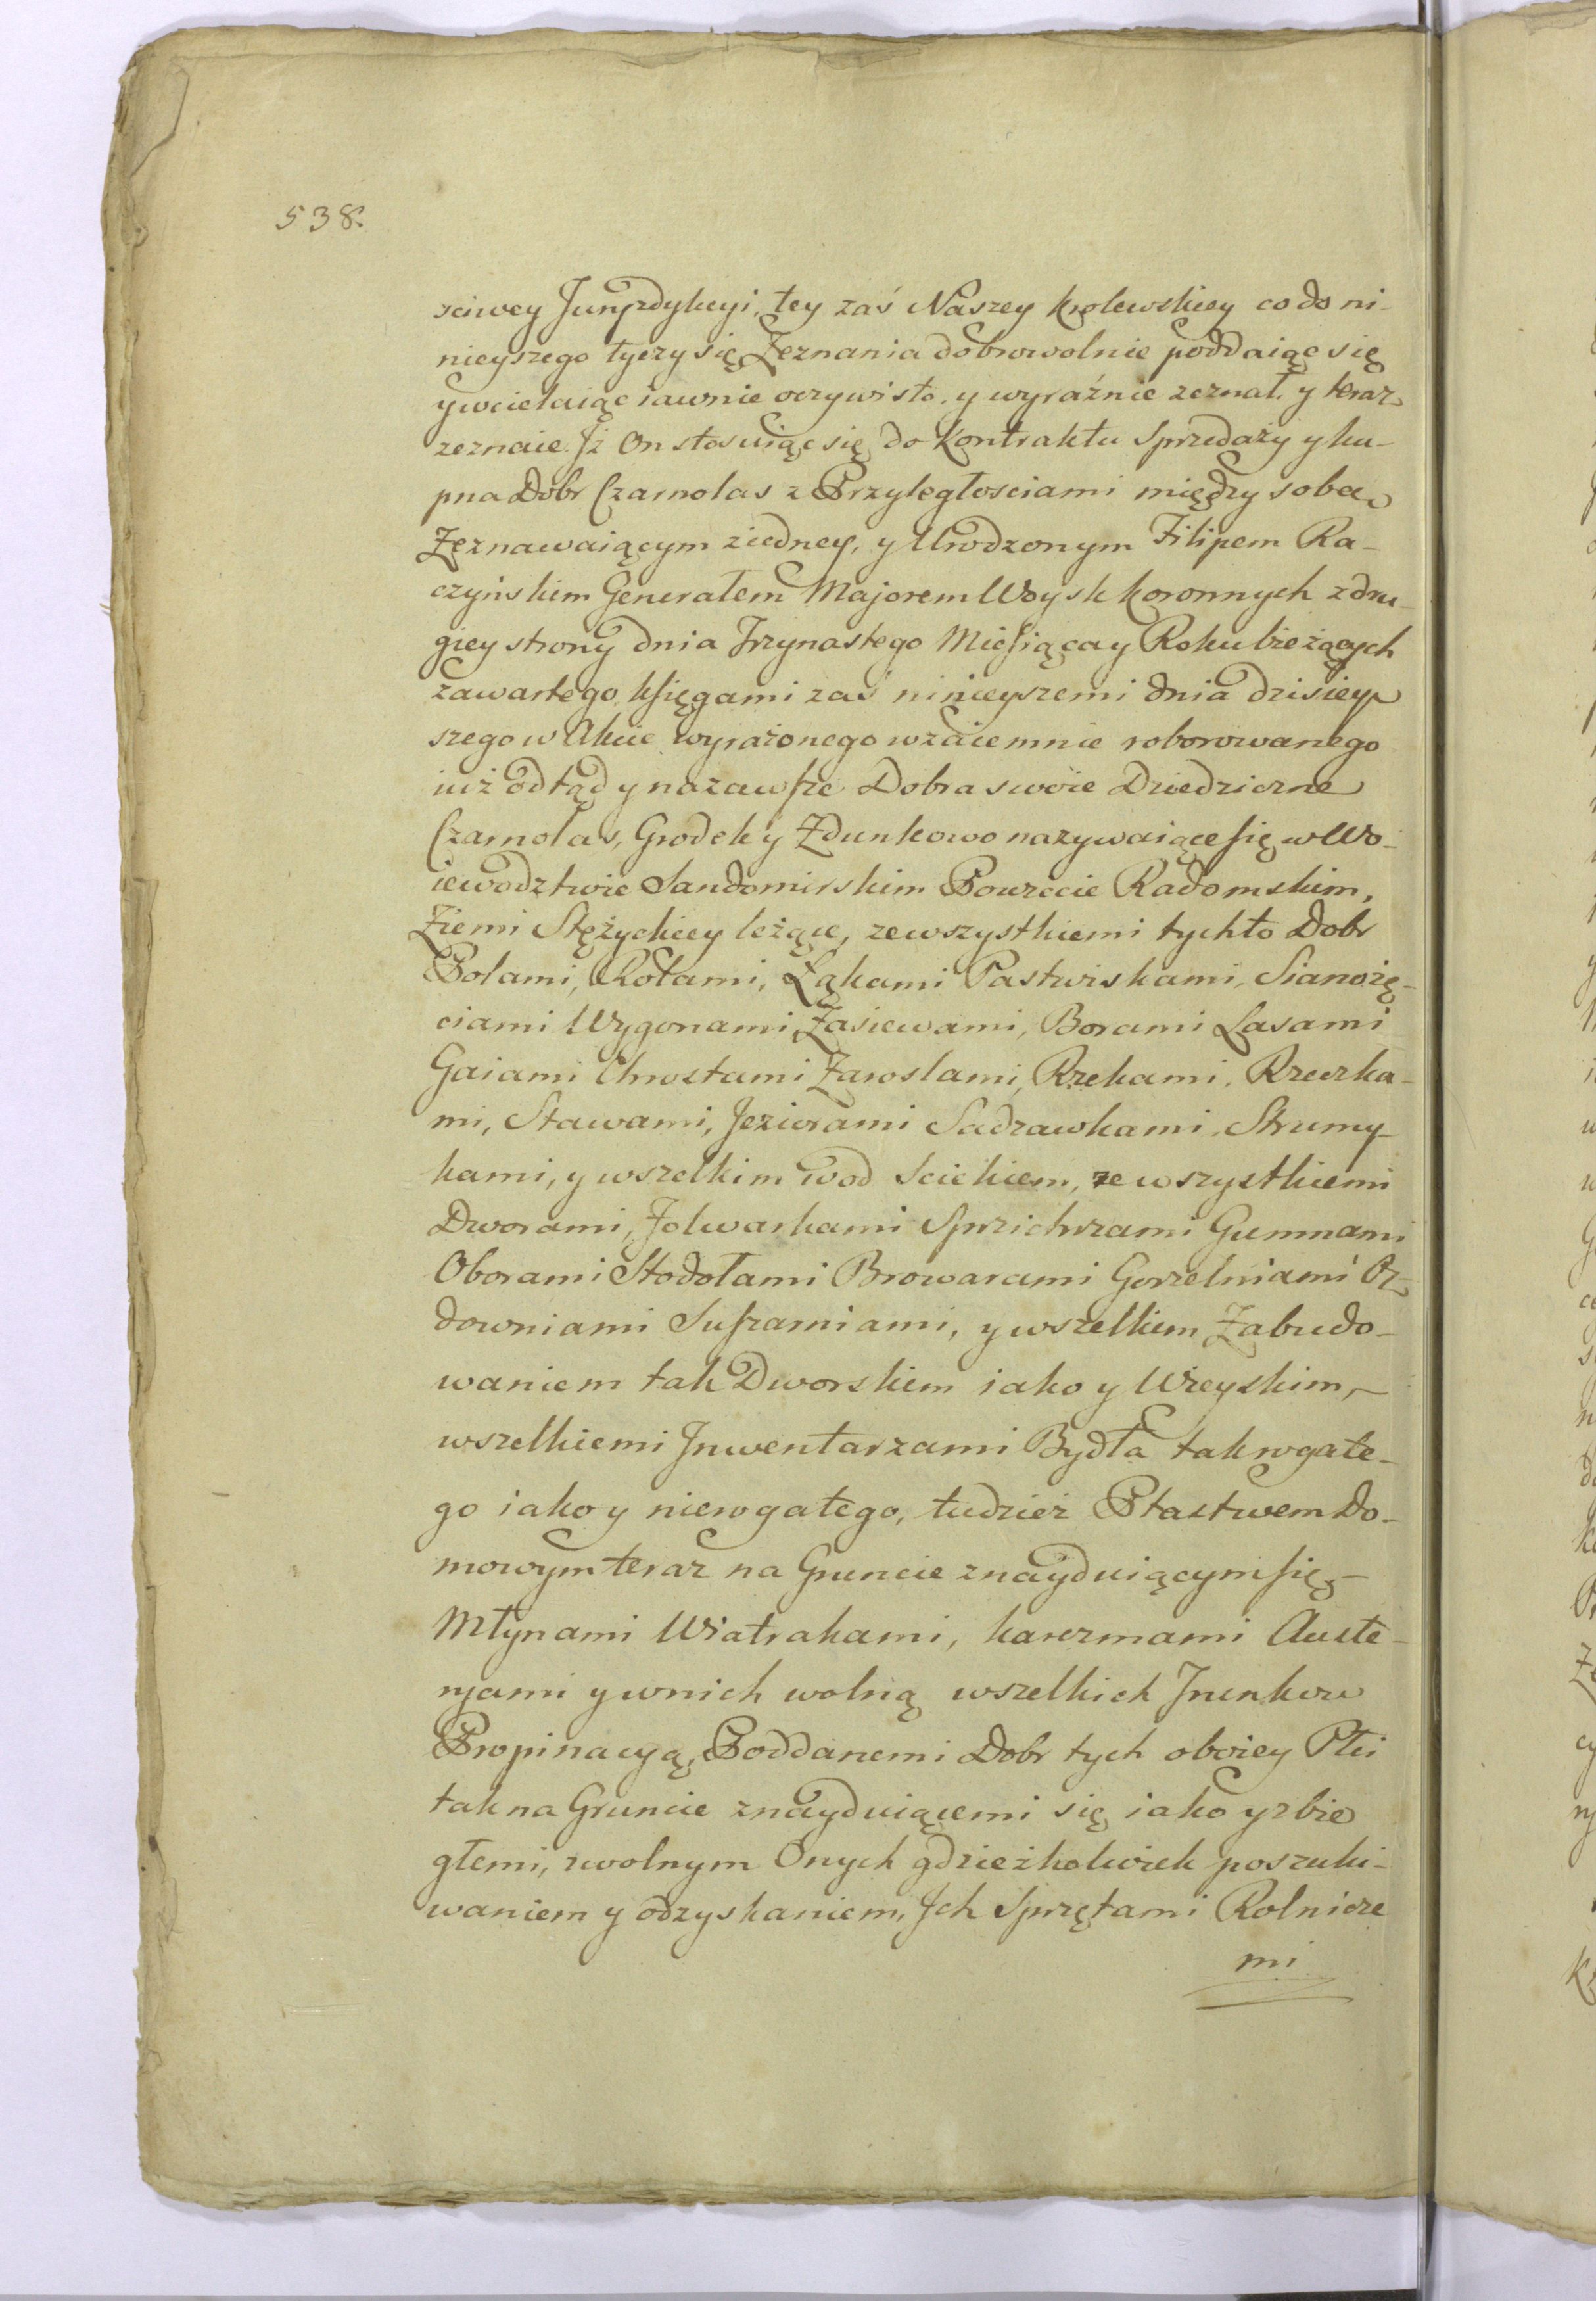 538.
sciwey Jurysdykcyi, tey zaś Naszey Krolewskiey co do ni-
nieyszego tyczy się Zeznania dobrowolnie poddaiąc się
y wcielaiąc iawnie oczywisto. y wyraźnie zeznał. y teraz
zeznaie Jż On stosuiąc się do Kontraktu Sprzedaży y ku-
pna Dobr Czarnolas z Przyległosciami między sobą
Zeznawaiącym ziedney, y Urodzonym Filipem Ra-
czyńskim Generałem Majorem Woysk Koronnych z dru-
giey strony dnia Trzynastego Miesiąca y Roku bieżących
zawartego, księgami zaś ninieyszemi dnia dzisiey-
szego w Akcie wyrażonego wzaiemnie roborowanego
iuż odtąd y nazawsze Dobra swoie Dziedziczne
Czarnolas, Grodek y Zdunkowo nazywaiące się w Wo-
iewodztwie Sandomirskim Powiecie Radomskim,
Ziemi Stężyckiey leżące, zewszystkiemi tychto Dobr
Polami, Rolami, Łąkami Pastwiskami, Sianożę-
ciami Wygonami, Zasiewami, Borami Lasami
Gaiami Chrostami Zaroslami, Rzekami, Rzeczka-
mi, Stawami, Jeziorami Sadzawkami, Strumy-
kami, y wszelkim wod sciekiem, ze wszystkiemi
Dworami, Folwarkami Spichrzami Gumnami
Oborami Stodołami Browarami Gorzelniami Oz-
downiami Suszarniami, y wszelkiem Zabudo-
waniem tak Dworskiem iako y Wieyskim,
wszelkiemi Jnwentarzami Bydła tak rogate-
go iako y nierogatego, tudzież Ptastwem Do-
mowym teraz na Gruncie znayduiącym się,
Młynami Wiatrakami, karczmami Auste-
ryami y wnich wolną wszelkich Trunkow
Propinacyą, Poddanemi Dobr tych oboiey Płci
tak na Gruncie znayduiącemi się iako y zbie
głemi, zwolnym Onych gdzieżkolwiek poszuki-
waniem y odzyskaniem, Jch Sprzętami Rolnicze
mi